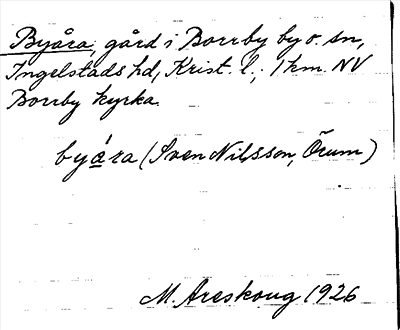 Byåra, gård i Borrby by o. sn,
Ingelstads hd, Krist. l.; 1 km. NV
Borrby kyrka.
byára (Sven Nilsson, Örum)
M. Areskoug 1926